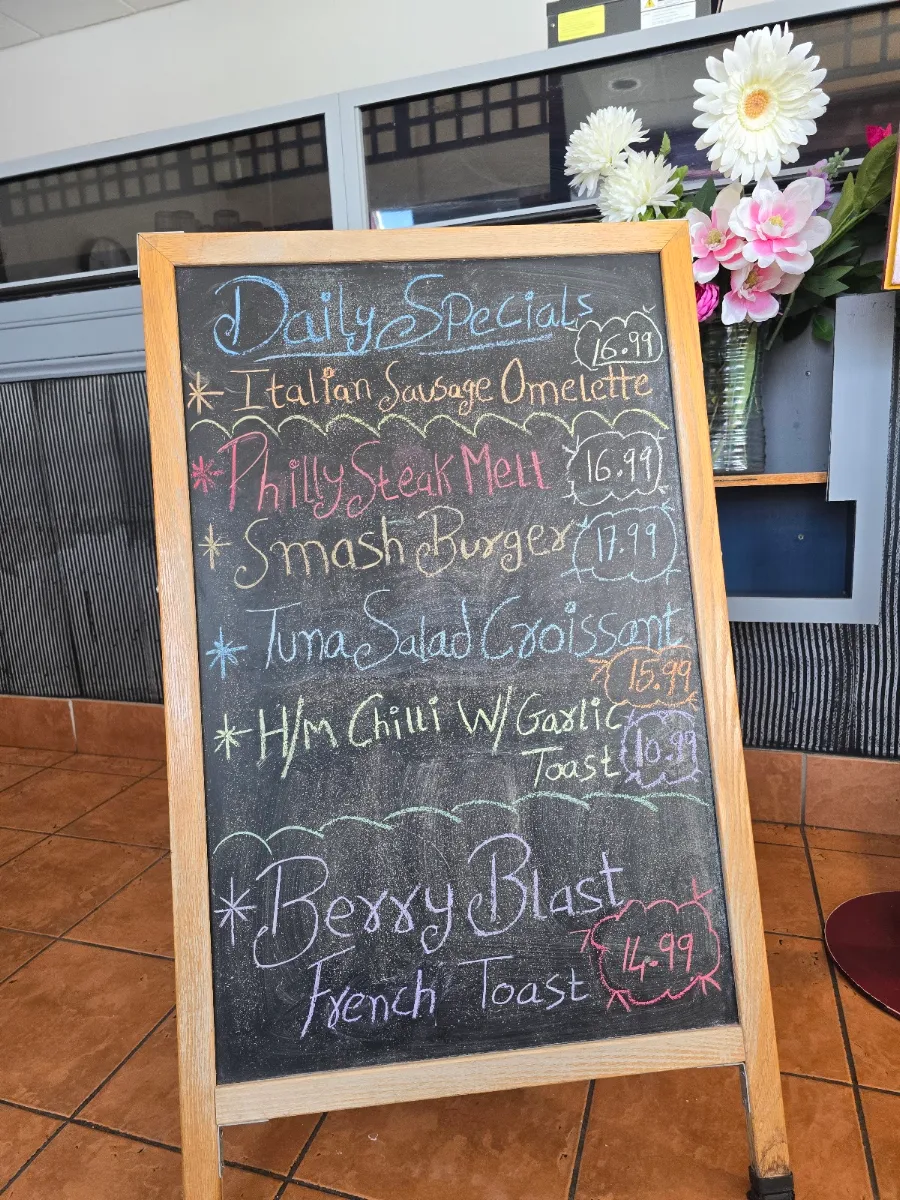 Daily Specials
16.99
* Italian Sausage Omelette
* Philly Steak Melt 16.99
* Smash Burger 17.99
* Tuna Salad Croissant
15.99
* H/M Chilli W/ Garlic
Toast 10.99
* Berry Blast
French Toast 14.99